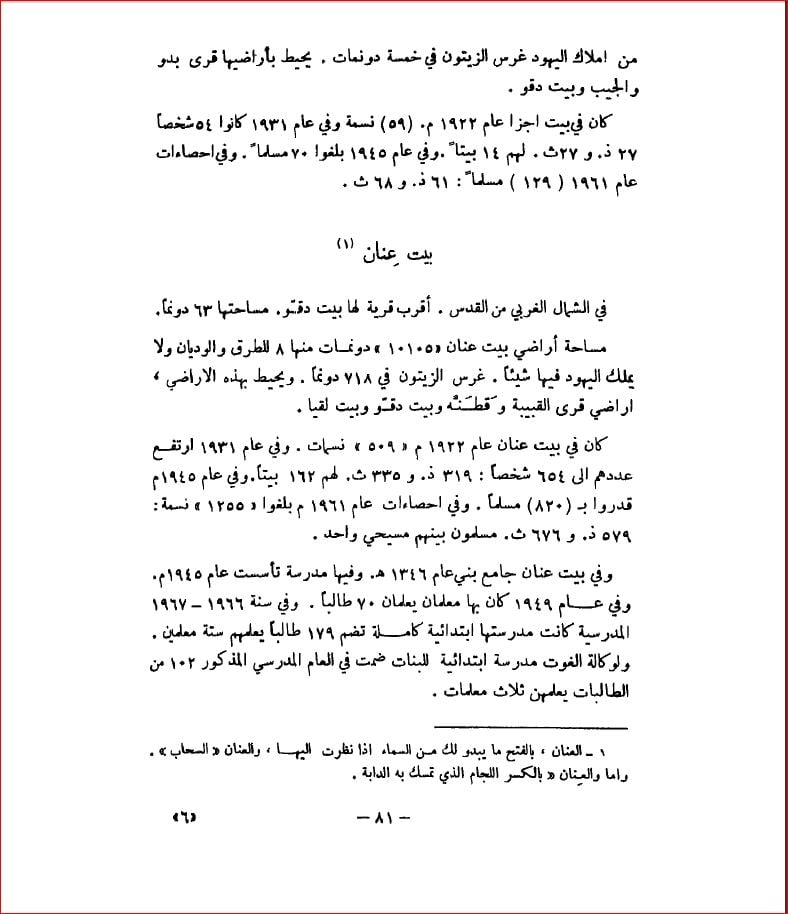 من املاك اليهود غرس الزيتون في خمسة دونمات . يحيط بأراضيها قرى بدو
والجيب وبيت دقو .
كان في بيت اجزا عام ١٩٢٢ م. (٥٩) نسمة وفي عام ١٩٣١ كانوا ٥٤ شخصاً
٢٧ ذ. و ٢٧ ث . لهم ١٤ بيتاً . وفي عام ١٩٤٥ بلغوا ٧٠ مسلماً . وفي احصاءات
عام ١٩٦١ ( ١٢٩ ) مسلماً : ٦١ ذ. و ٦٨ ث .
بيت عِنان (١)
في الشمال الغربي من القدس . أقرب قرية لها بيت دقّو. مساحتها ٦٣ دونماً.
مساحة أراضي بيت عنان «١٠١٠٥» دونمــات منها ٨ للطرق والوديان ولا
يملك اليهود فيها شيئاً . غرس الزيتون في ٧١٨ دونماً . ويحيط بهذه الاراضي ،
اراضي قرى القبيبة وقَطَنَّه وبيت دقّو وبيت لقيا .
كان في بيت عنان عام ١٩٢٢ م « ٥٠٩ » نسمات . وفي عام ١٩٣١ ارتفــع
عددهم الى ٦٥٤ شخصاً : ٣١٩ ذ. و ٣٣٥ ث. لهم ١٦٢ بيتاً. وفي عام ١٩٤٥م
قدروا بـ (٨٢٠) مسلماً . وفي احصاءات عام ١٩٦١ م بلغوا « ١٢٥٥ » نسمة :
٥٧٩ ذ. و ٦٧٦ ث. مسلمون بينهم مسيحي واحد .
وفي بيت عنان جامع بني عام ١٣٤٦ هـ. وفيها مدرسة تأسست عام ١٩٤٥م.
وفي عـــام ١٩٤٩ كان بها معلمان يعلمان ٧٠ طالباً . وفي سنة ١٩٦٦ – ١٩٦٧
المدرسية كانت مدرستها ابتدائية كامــلة تضم ١٧٩ طالباً يعلمهم ستة معلمين .
ولوكالة الغوث مدرسة ابتدائية للبنات ضمت في العام المدرسي المذكور ١٠٢ من
الطالبات يعلمهن ثلاث معلمات .
١ – العنان ، بالفتح ما يبدو لك مـن السماء اذا نظرت اليهــا ، والعنان « السحاب » .
واما والعِنان « بالكسر اللجام الذي تمسك به الدابة .
– ٨١ –
«٦»